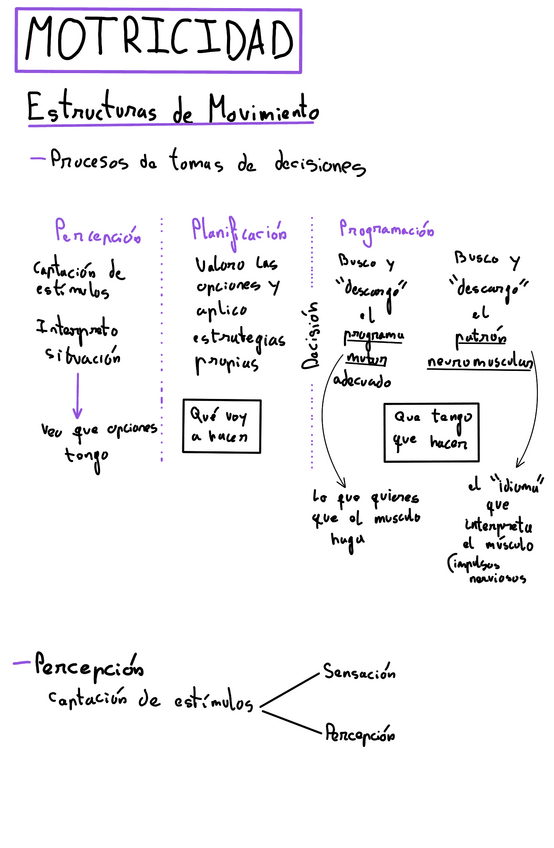 MOTRICIDAD
Estructuras de Movimiento
- Procesos de tomas de decisiones
Percepción
Captación de
estímulos
Interpreto
situación
Veo que opciones
tengo
Planificación
Valoro las
opciones y
aplico
estrategias
propias
Qué voy
a hacer
Decisión
Programación
Busco y
"descargo"
el
programa
motor
adecuado
Busco y
"descargo"
el
patrón
neuromuscular
Que tengo
que hacer
Lo que quieres
que el musculo
haga
el "idioma"
que
interpreta
el músculo
(impulsos
nerviosos
- Percepción
Captación de estímulos
Sensación
Percepción